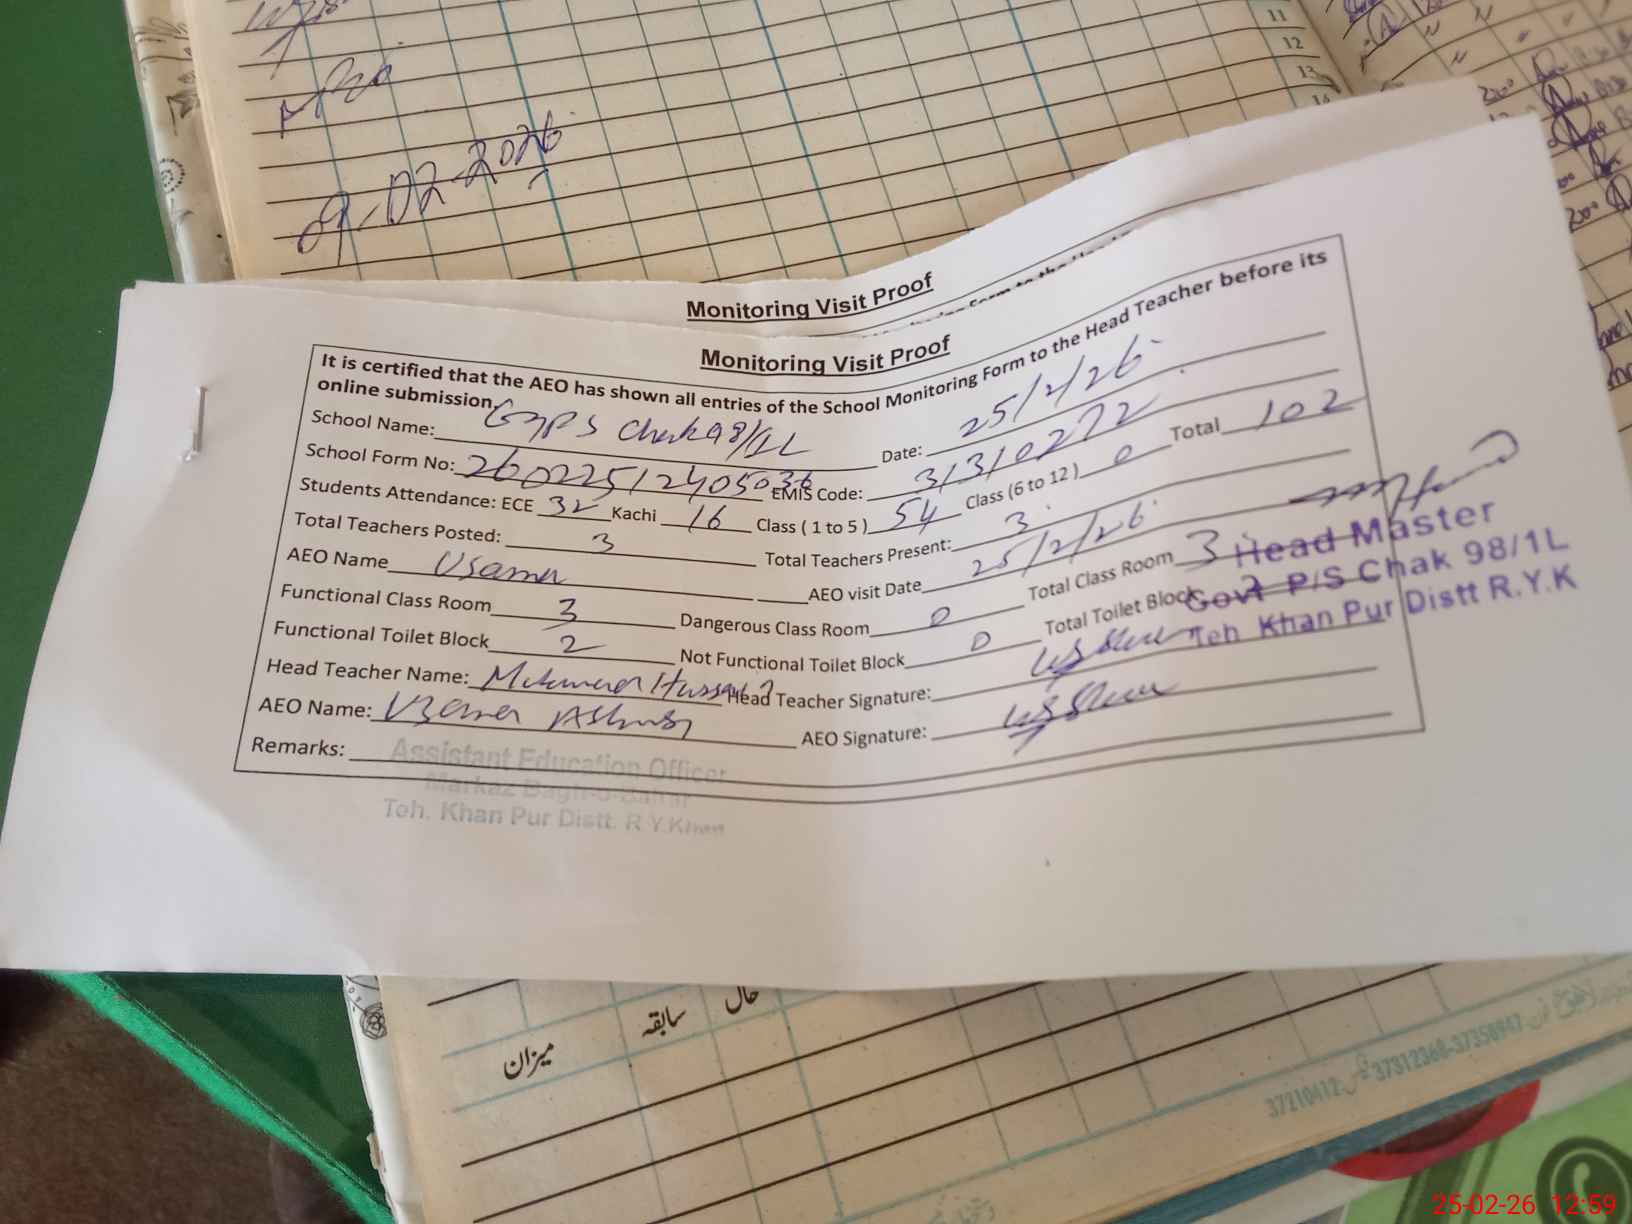 11
12
13
14
9-02-2026
Monitoring Visit Proof
Monitoring Visit Proof
It is certified that the AEO has shown all entries of the School Monitoring Form to the Head Teacher before its
online submission
School Name: GMPS Chak 98/1L Date: 25/2/26
School Form No: 26022512405036 EMIS Code: 31310272
Students Attendance: ECE 32 Kachi 16 Class ( 1 to 5 ) 54 Class (6 to 12 ) 0 Total 102
Total Teachers Posted: 3 Total Teachers Present: 3
AEO Name Usama AEO visit Date 25/2/26 Total Class Room 3
Functional Class Room 3 Dangerous Class Room 0 Total Toilet Block 2
Functional Toilet Block 2 Not Functional Toilet Block 0
Head Teacher Name: Head Teacher Signature:
AEO Name: Usama Ashraf AEO Signature:
Remarks:
Head Master
Govt P/S Chak 98/1L
Teh Khan Pur Distt R.Y.K
Assistant Education Officer
Markaz Bagh-o-Bahar
Teh. Khan Pur Distt. R.Y.Khan
میزان سابقہ حال
37210412 37312360-37350947
25-02-26 12:59